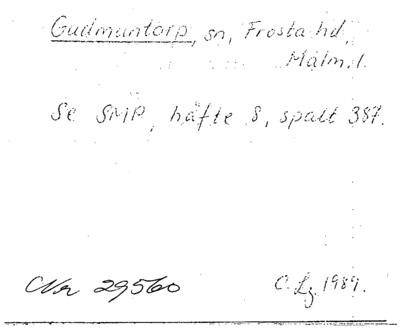 Gudmuntorp, sn, Frosta hd,
Malm. l.
Se SMP, häfte 8, spalt 387.
Nr 29560 C. Lz. 1989.